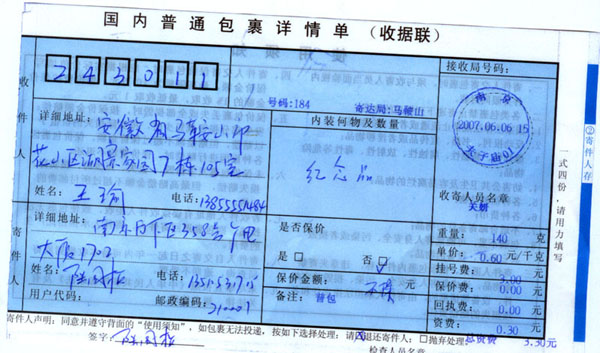 国内普通包裹详情单（收据联）
243011
接收局号码：
号码:184 寄达局:马鞍山
收件人
详细地址：安徽省马鞍山
内装何物及数量
南京
2007.06.06 15
夫子庙01
花小区湖景家园7栋105室
纪念品
姓名：王瑜
电话：
收寄人员名章
关妍
寄件人
详细地址：南京白下区358
大厦1702
是否保价
是□ 否□
重量：140 克
单价：0.60 元/千克
挂号费：3.00 元
姓名：
电话：
保价金额： 元
保价费：0.00 元
用户代码：
邮政编码：210001
备注：背包
回执费：0.00 元
资费：0.30 元
总资费 3.30元
寄件人声明：同意并遵守背面的“使用须知”，如包裹无法投递，按如下选择处理：请□退还寄件人；□抛弃处理
签字：
检查人员名章
②寄件人存
一式四份，请用力填写